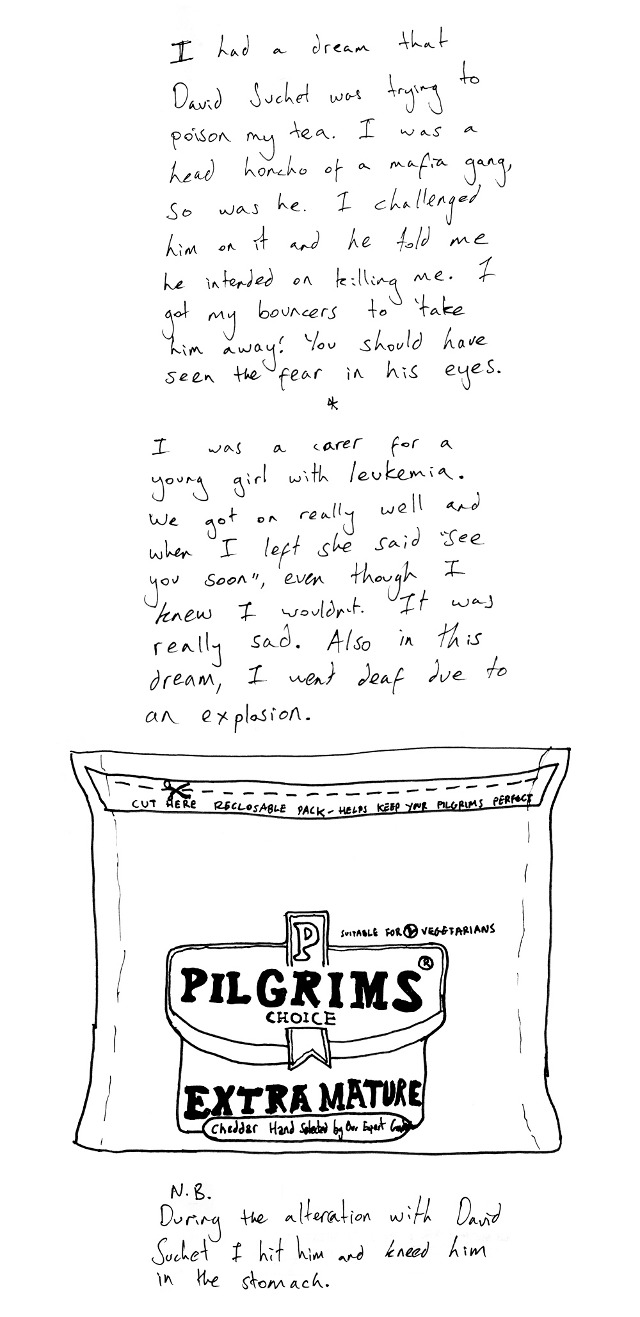 I had a dream that
David Suchet was trying to
poison my tea. I was a
head honcho of a mafia gang,
so was he. I challenged
him on it and he told me
he intended on killing me. I
got my bouncers to take
him away! You should have
seen the fear in his eyes.
*
I was a carer for a
young girl with leukemia.
We got on really well and
when I left she said "see
you soon", even though I
knew I wouldn't. It was
really sad. Also in this
dream, I went deaf due to
an explosion.
CUT HERE RECLOSABLE PACK - HELPS KEEP YOUR PILGRIMS PERFECT
SUITABLE FOR V VEGETARIANS
P
PILGRIMS ®
CHOICE
EXTRA MATURE
Cheddar Hand Selected by Our Expert
N.B.
During the altercation with David
Suchet I hit him and kneed him
in the stomach.